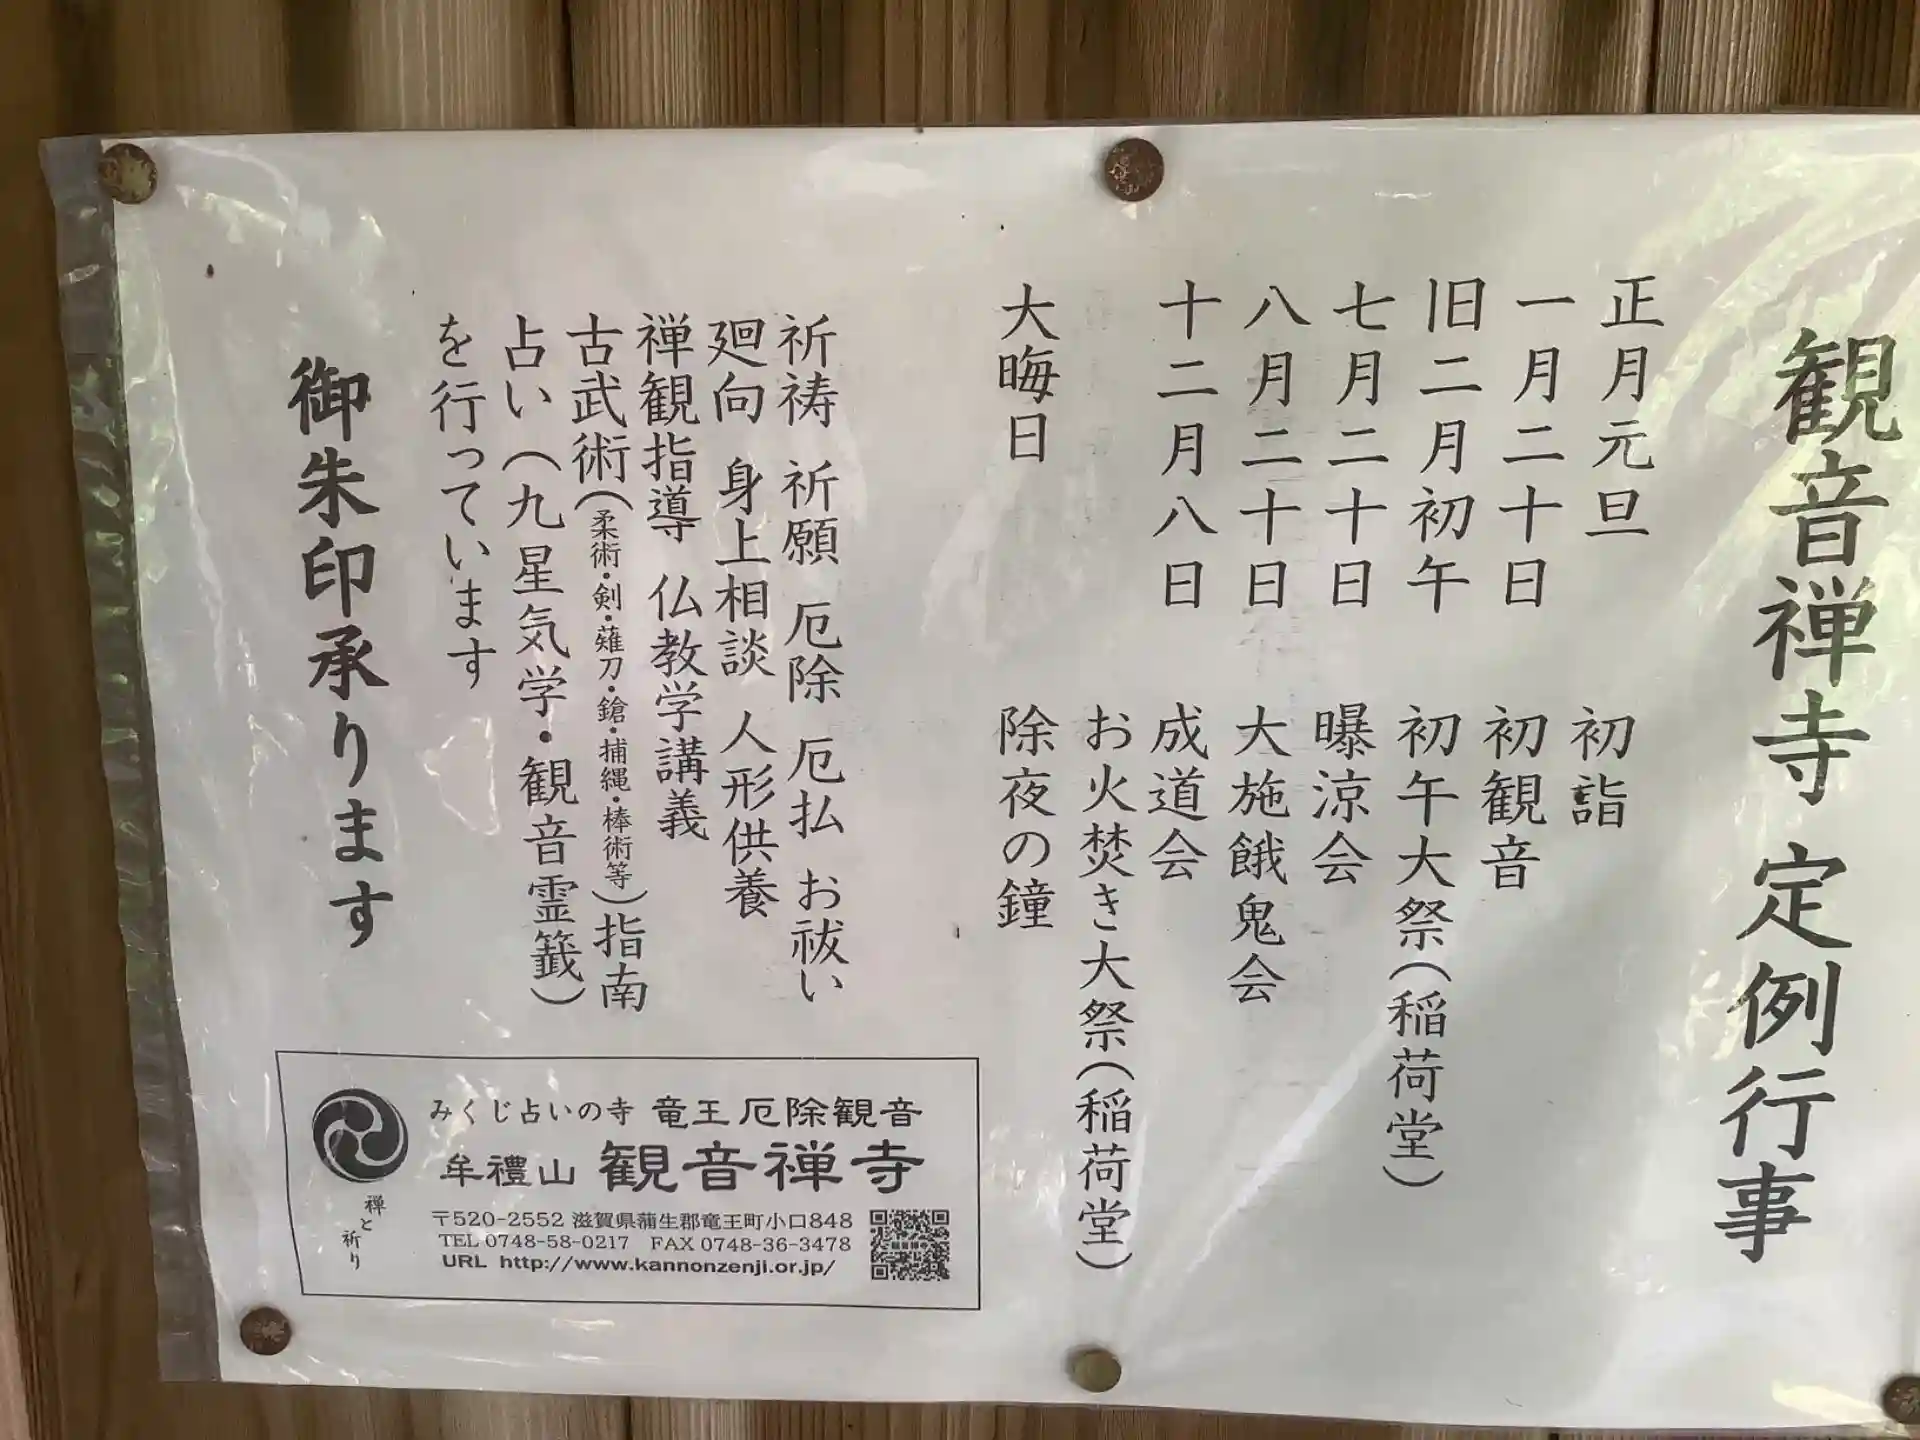 観音禅寺 定例行事
正月元旦 初詣
一月二十日 初観音
旧二月初午 初午大祭(稲荷堂)
七月二十日 曝涼会
八月二十日 大施餓鬼会
十二月八日 成道会
お火焚き大祭(稲荷堂)
大晦日 除夜の鐘
祈祷 祈願 厄除 厄払 お祓い
廻向 身上相談 人形供養
禅観指導 仏教学講義
古武術(柔術・剣・薙刀・鎗・捕縄・棒術等)指南
占い(九星気学・観音霊籤)
を行っています
御朱印承ります
みくじ占いの寺 竜王厄除観音
牟禮山 観音禅寺
〒520-2552 滋賀県蒲生郡竜王町小口848
TEL 0748-58-0217 FAX 0748-36-3478
URL http://www.kannonzenji.or.jp/
禅と祈り